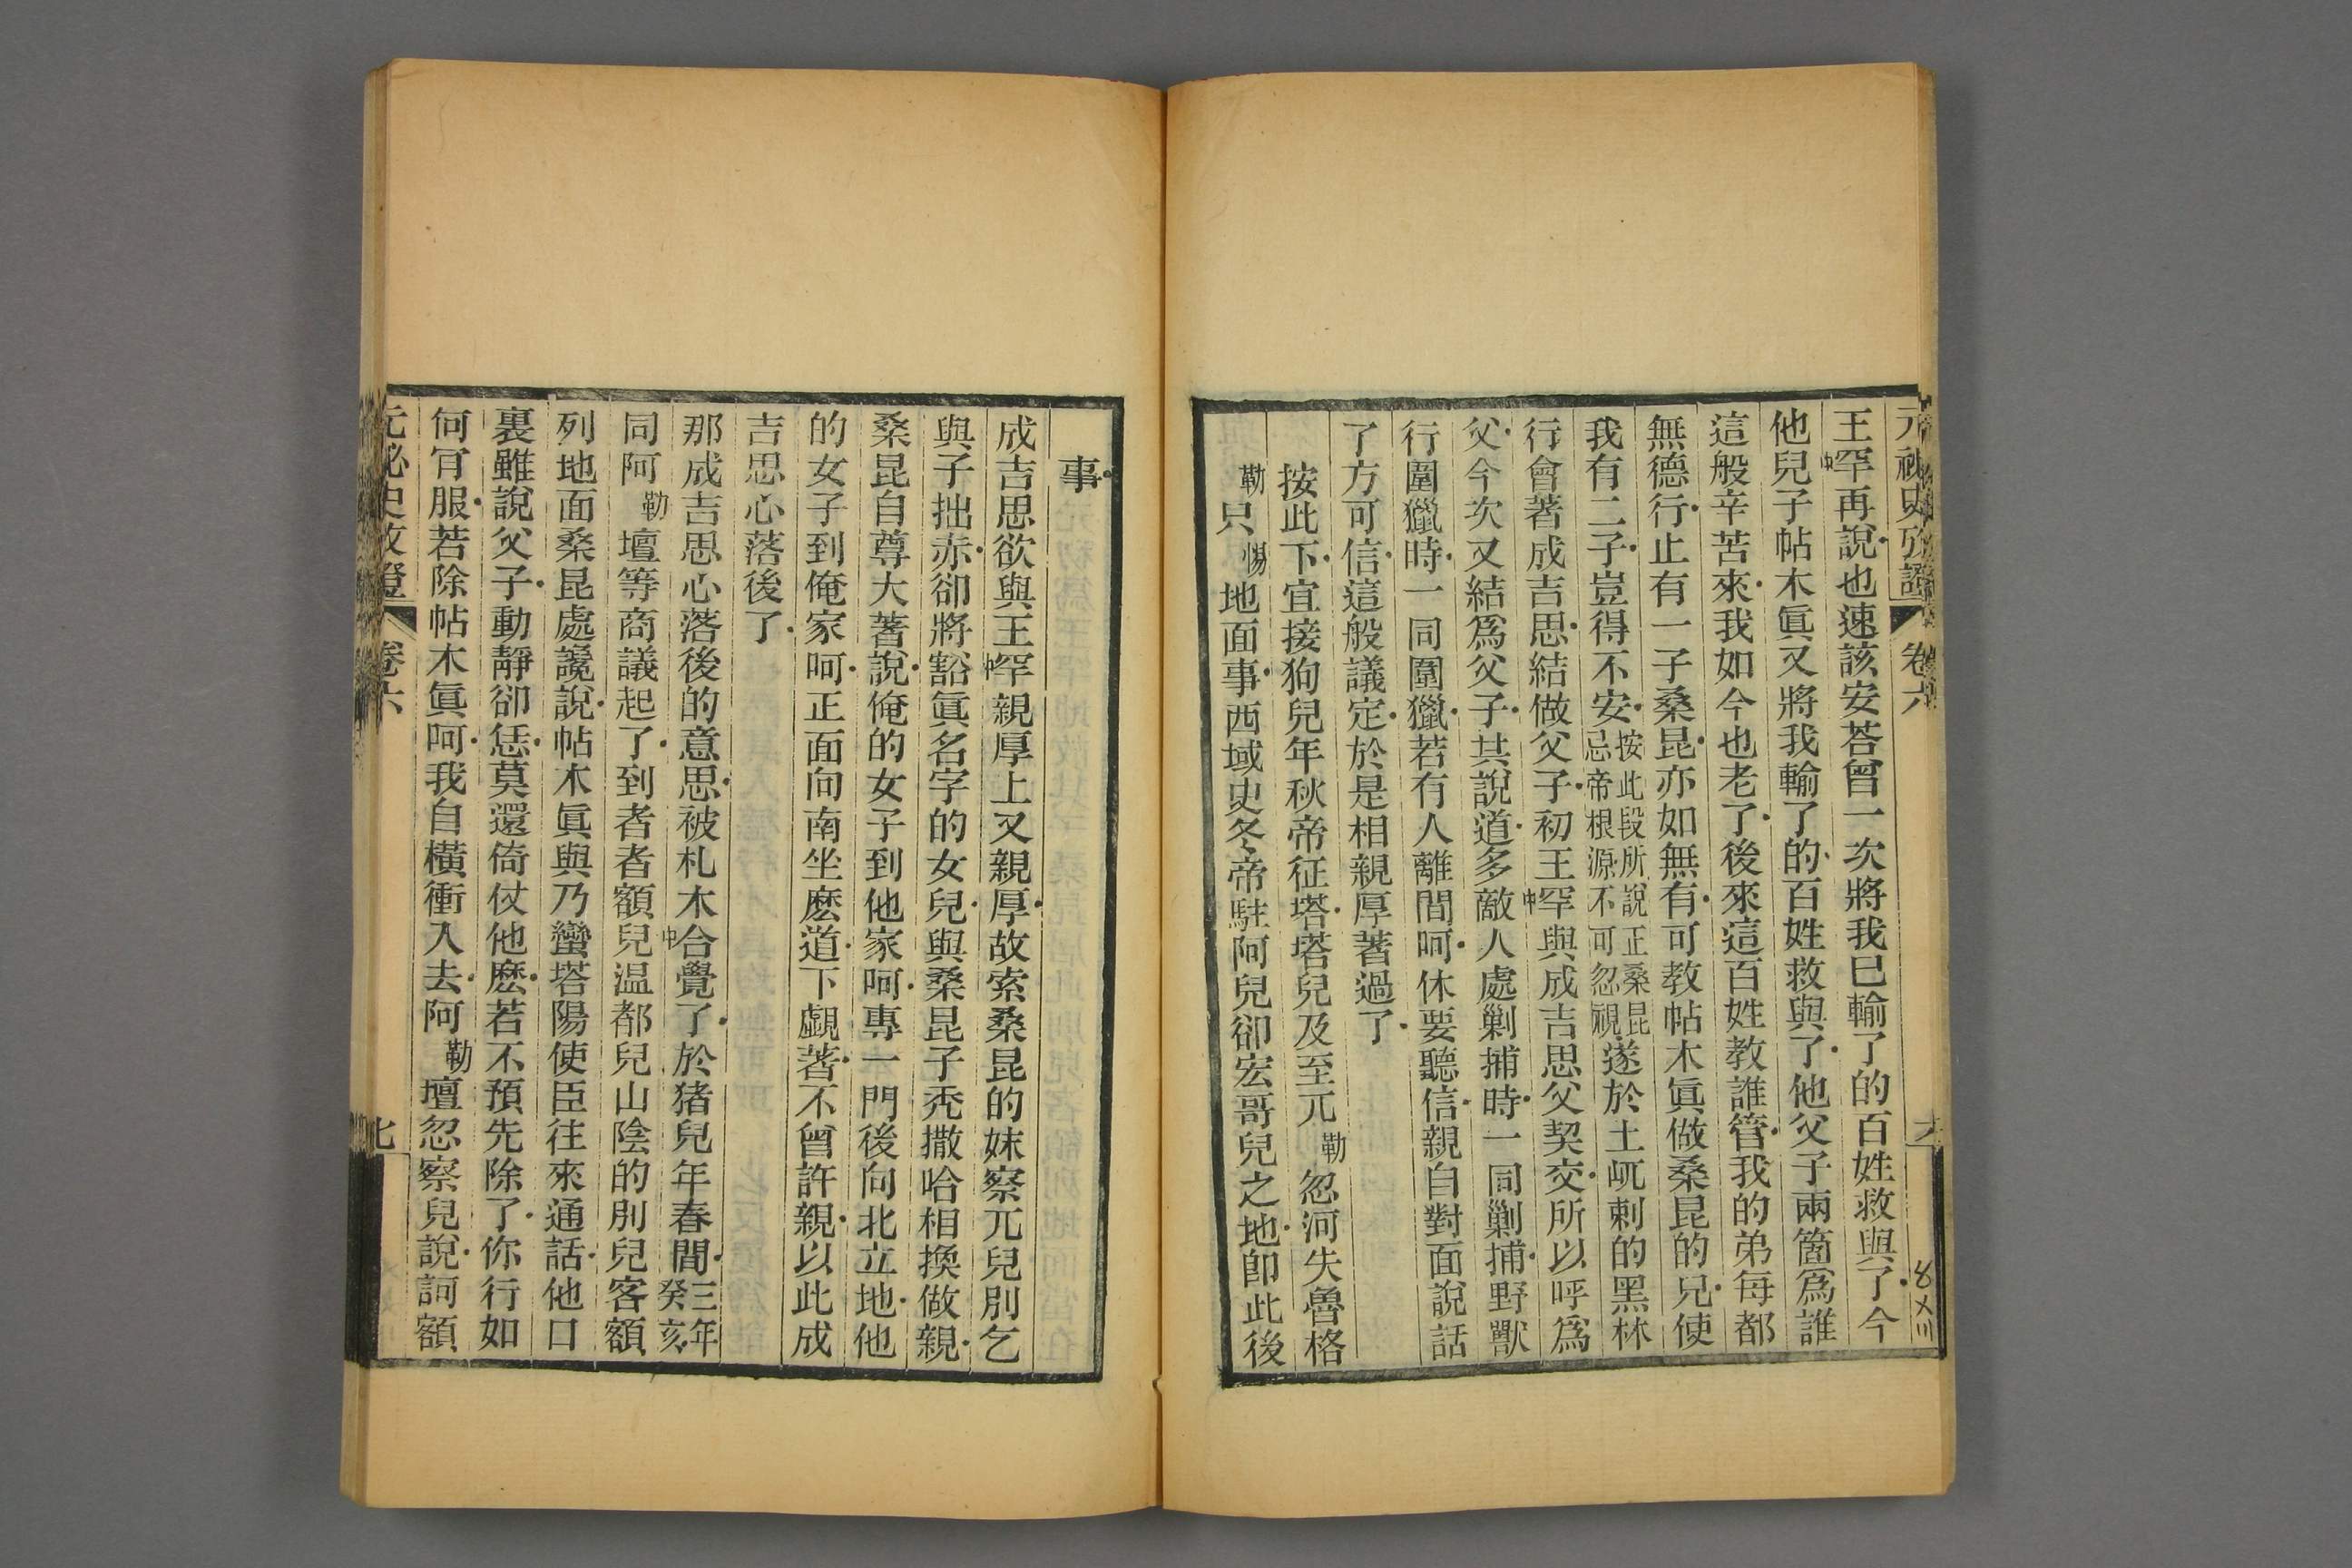 元祕史攷證 卷六
王中罕再說也速該安荅曾一次將我已輸了的百姓救與了今
他兒子帖木眞又將我輸了的百姓救與了他父子兩箇爲誰
這般辛苦來我如今也老了後來這百姓敎誰管我的弟每都
無德行止有一子桑昆亦如無有可敎帖木眞做桑昆的兄使
我有二子豈得不安按此段所說正桑昆忌帝根源不可忽視遂於土屼剌的黑林
行會著成吉思結做父子初王中罕與成吉思父契交所以呼爲
父今次又結爲父子其說道多敵人處剿捕時一同剿捕野獸
行圍獵時一同圍獵若有人離間呵休要聽信親自對面說話
了方可信這般議定於是相親厚著過了
按此下宜接狗兒年秋帝征塔塔兒及至兀勒忽河失魯格
勒只惕地面事西域史冬帝駐阿兒卻宏哥兒之地卽此後
事
成吉思欲與王中罕親厚上又親厚故索桑昆的妹察兀兒別乞
與子拙赤卻將豁眞名字的女兒與桑昆子禿撒哈相換做親
桑昆自尊大著說俺的女子到他家呵專一門後向北立地他
的女子到俺家呵正面向南坐麽道下覷著不曾許親以此成
吉思心落後了
那成吉思心落後的意思被札木中合覺了於猪兒年春間三年癸亥
同阿勒壇等商議起了到者者額兒温都兒山陰的別兒客額
列地面桑昆處讒說帖木眞與乃蠻塔陽使臣往來通話他口
裏雖說父子動靜卻恁莫還倚仗他麽若不預先除了你行如
何肎服若除帖木眞呵我自橫衝入去阿勒壇忽察兒說訶額
元祕史攷證 卷六